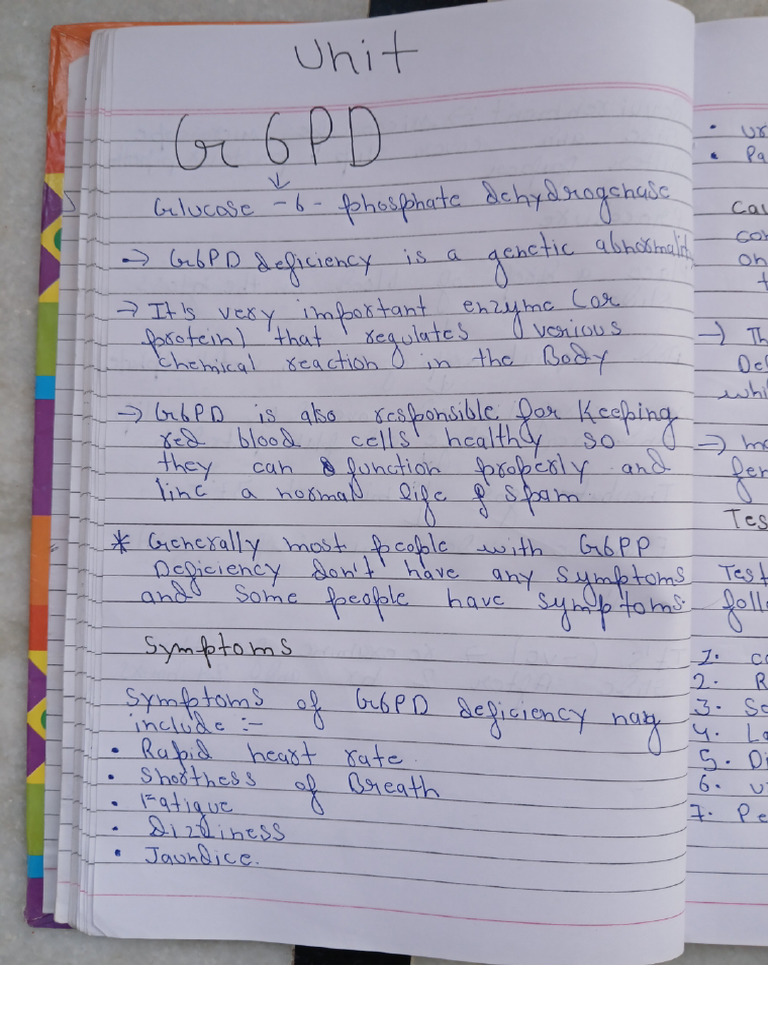 Unit
G6PD
Glucose -6- phosphate dehydrogenase
→ G6PD deficiency is a genetic abnormalit
→ It's very important enzyme (or
protein) that regulates verious
chemical reaction in the Body
→ G6PD is also responsible for Keeping
red blood cells healthy so
they can function properly and
linc a normal life & spam
* Generally most people with G6PP
Deficiency don't have any symptoms
and some people have symptoms.
Symptoms
Symptoms of G6PD deficiency may
include :-
• Rapid heart rate.
• Shortness of Breath
• Fatigue
• Dizziness
• Jaundice.
•
•
→)
→)
Test
1.
2. R
3.
4.
5.
6.
7.